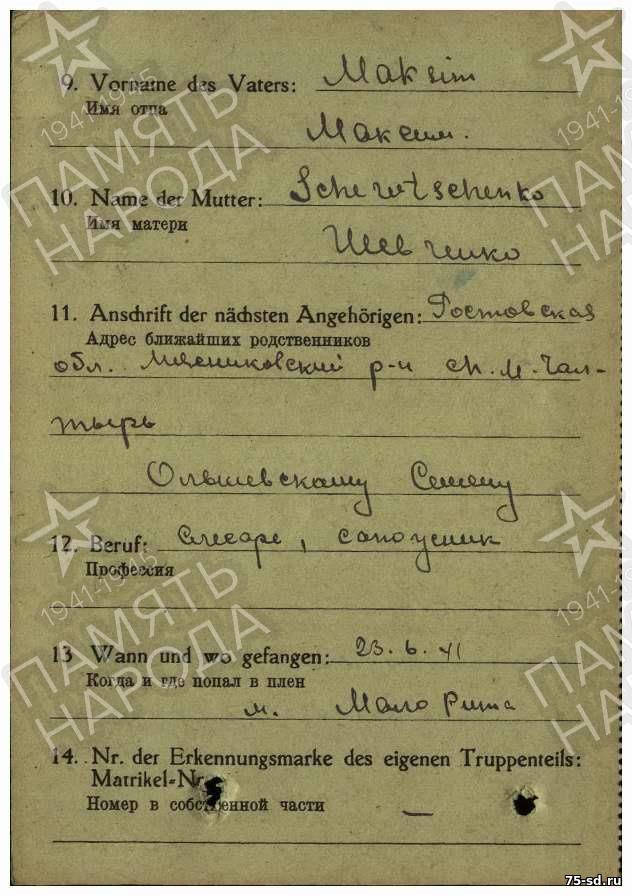 1941-1945
ПАМЯТЬ
НАРОДА
9. Vorname des Vaters: Maksim
Имя отца
Максим.
10. Name der Mutter: Schewtschenko
Имя матери
Шевченко
11. Anschrift der nächsten Angehörigen: Ростовская
Адрес ближайших родственников
обл. Мясниковский р-н ст. М. Чал-
тырь
Ольшевскому Семену
12. Beruf: Слесарь, сапожник
Профессия
13 Wann und wo gefangen: 23.6.41
Когда и где попал в плен
м. Мало Рита
14. Nr. der Erkennungsmarke des eigenen Truppenteils:
Matrikel-Nr.
Номер в собственной части —
75-sd.ru